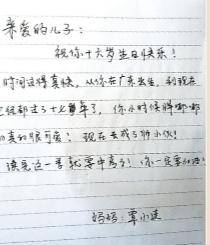 亲爱的儿子:
祝你十六岁生日快乐!
时间过得真快,从你在广东出生,到现在
已经都过了十七年了,你小时候胖嘟嘟
的真的很可爱!现在变成了帅小伙!
读完这一季就要中考了!你一定要加油!
妈妈:覃小莲